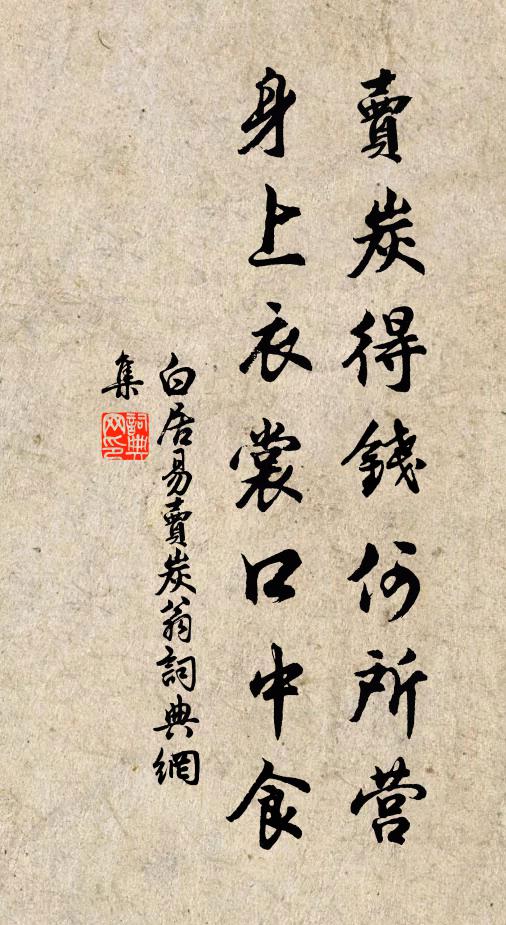 賣炭得錢何所营
身上衣裳口中食
白居易賣炭翁詞典網
集
詞典网印